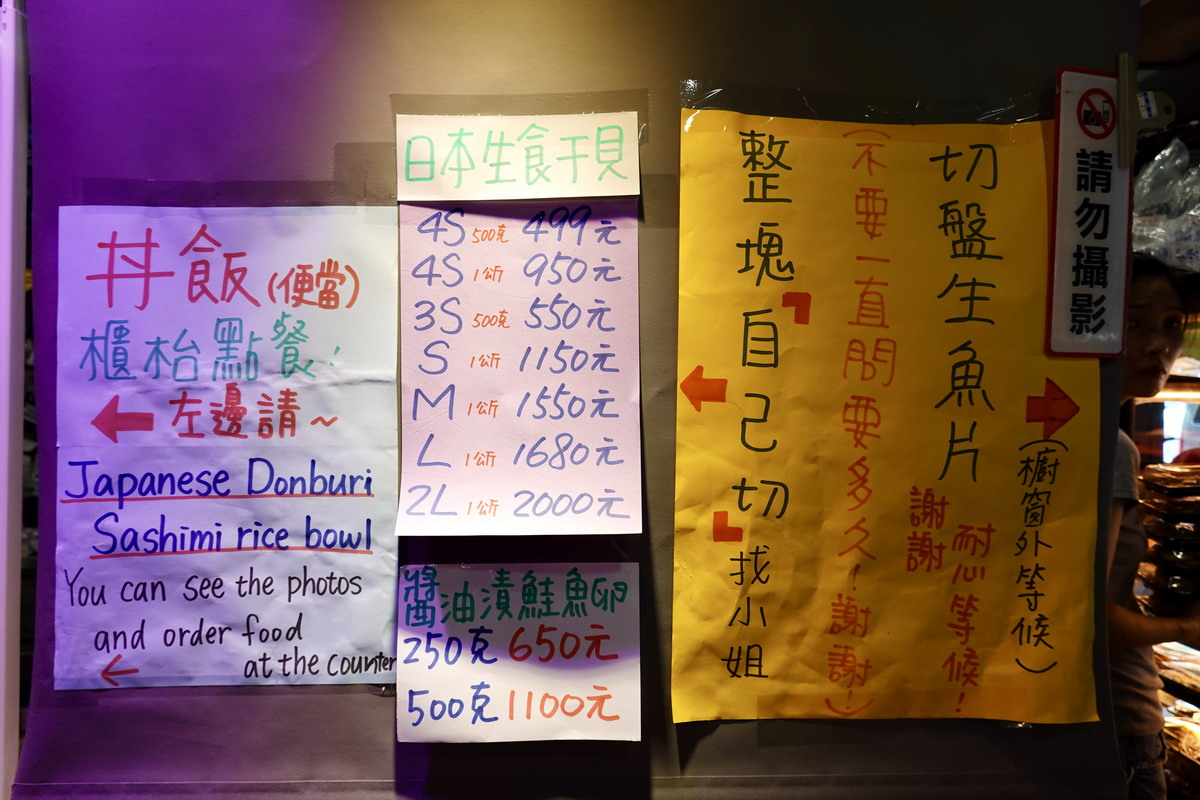 丼飯(便當)
櫃枱點餐!
左邊請~
Japanese Donburi
Sashimi rice bowl
You can see the photos
and order food
at the counter
日本生食干貝
4S 500克 499元
4S 1公斤 950元
3S 500克 550元
S 1公斤 1150元
M 1公斤 1550元
L 1公斤 1680元
2L 1公斤 2000元
醬油漬鮭魚卵
250克 650元
500克 1100元
請勿攝影
切盤生魚片
(櫥窗外等候)
耐心等候!
謝謝
(不要一直問要多久!謝謝!)
整塊「自己切」找小姐